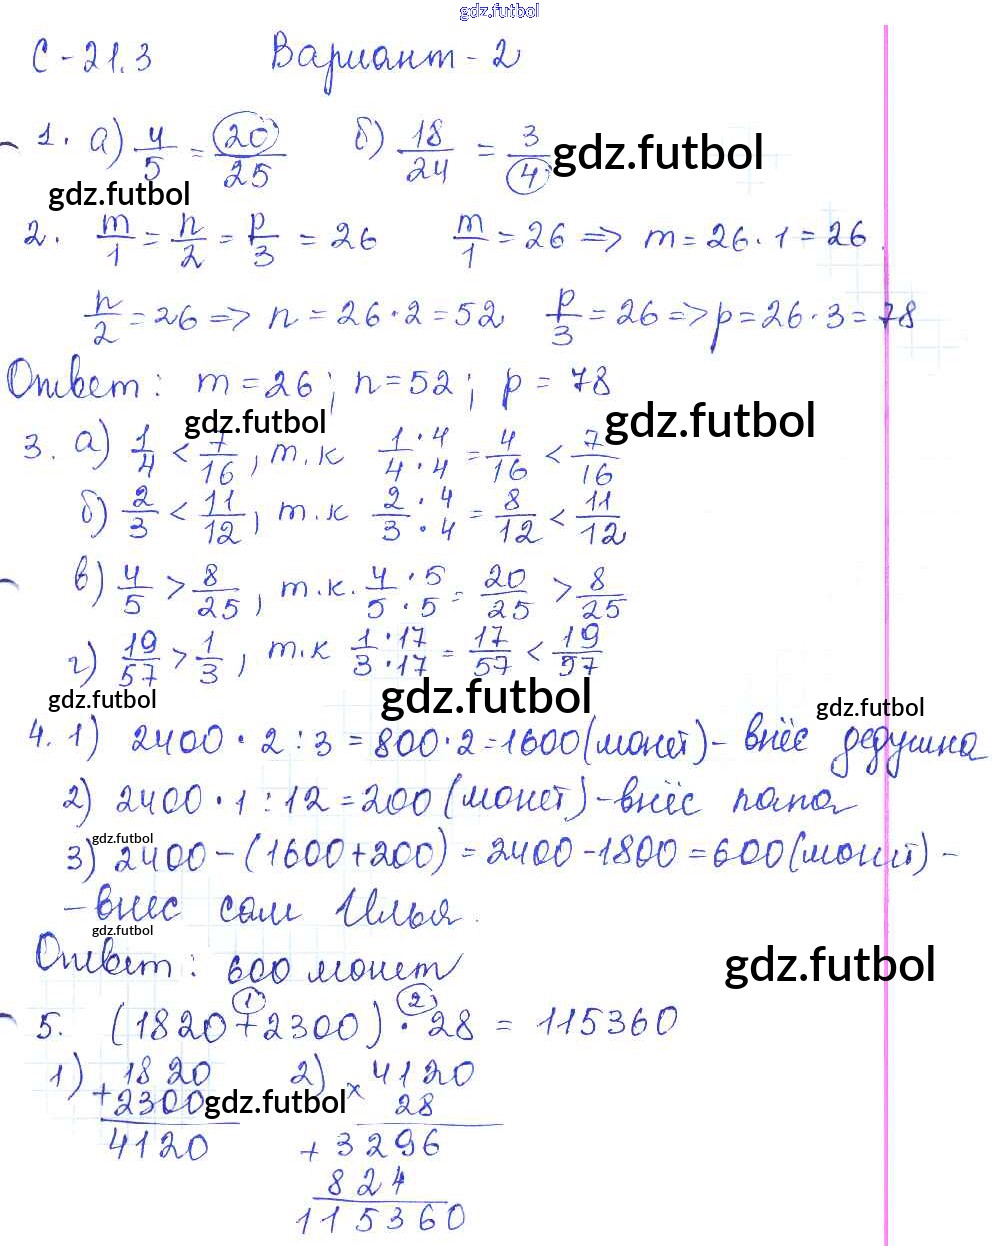 gdz.futbol
С-21.3 Вариант-2
1. а) 4/5 = 20/25 б) 18/24 = 3/4 gdz.futbol
gdz.futbol
2. m/1 = n/2 = p/3 = 26 m/1 = 26 => m = 26·1 = 26.
n/2 = 26 => n = 26·2 = 52 p/3 = 26 => p = 26·3 = 78
Ответ: m = 26; n = 52; p = 78
gdz.futbol gdz.futbol
3. а) 1/4 < 7/16, т.к 1·4/4·4 = 4/16 < 7/16
б) 2/3 < 11/12, т.к 2·4/3·4 = 8/12 < 11/12
в) 4/5 > 8/25, т.к. 4·5/5·5 = 20/25 > 8/25
г) 19/57 > 1/3, т.к 1·17/3·17 = 17/57 < 19/57
gdz.futbol gdz.futbol gdz.futbol
4. 1) 2400·2:3 = 800·2 = 1600 (монет) - внёс дедушка
2) 2400·1:12 = 200 (монет) - внёс папа
gdz.futbol
3) 2400-(1600+200) = 2400-1800 = 600 (монет) -
- внес сам Илья.
gdz.futbol
Ответ: 600 монет
gdz.futbol
1 2
5. (1820+2300)·28 = 115360
1) 1820 2) 4120
+2300 × 28
gdz.futbol
4120 + 3296
824
115360